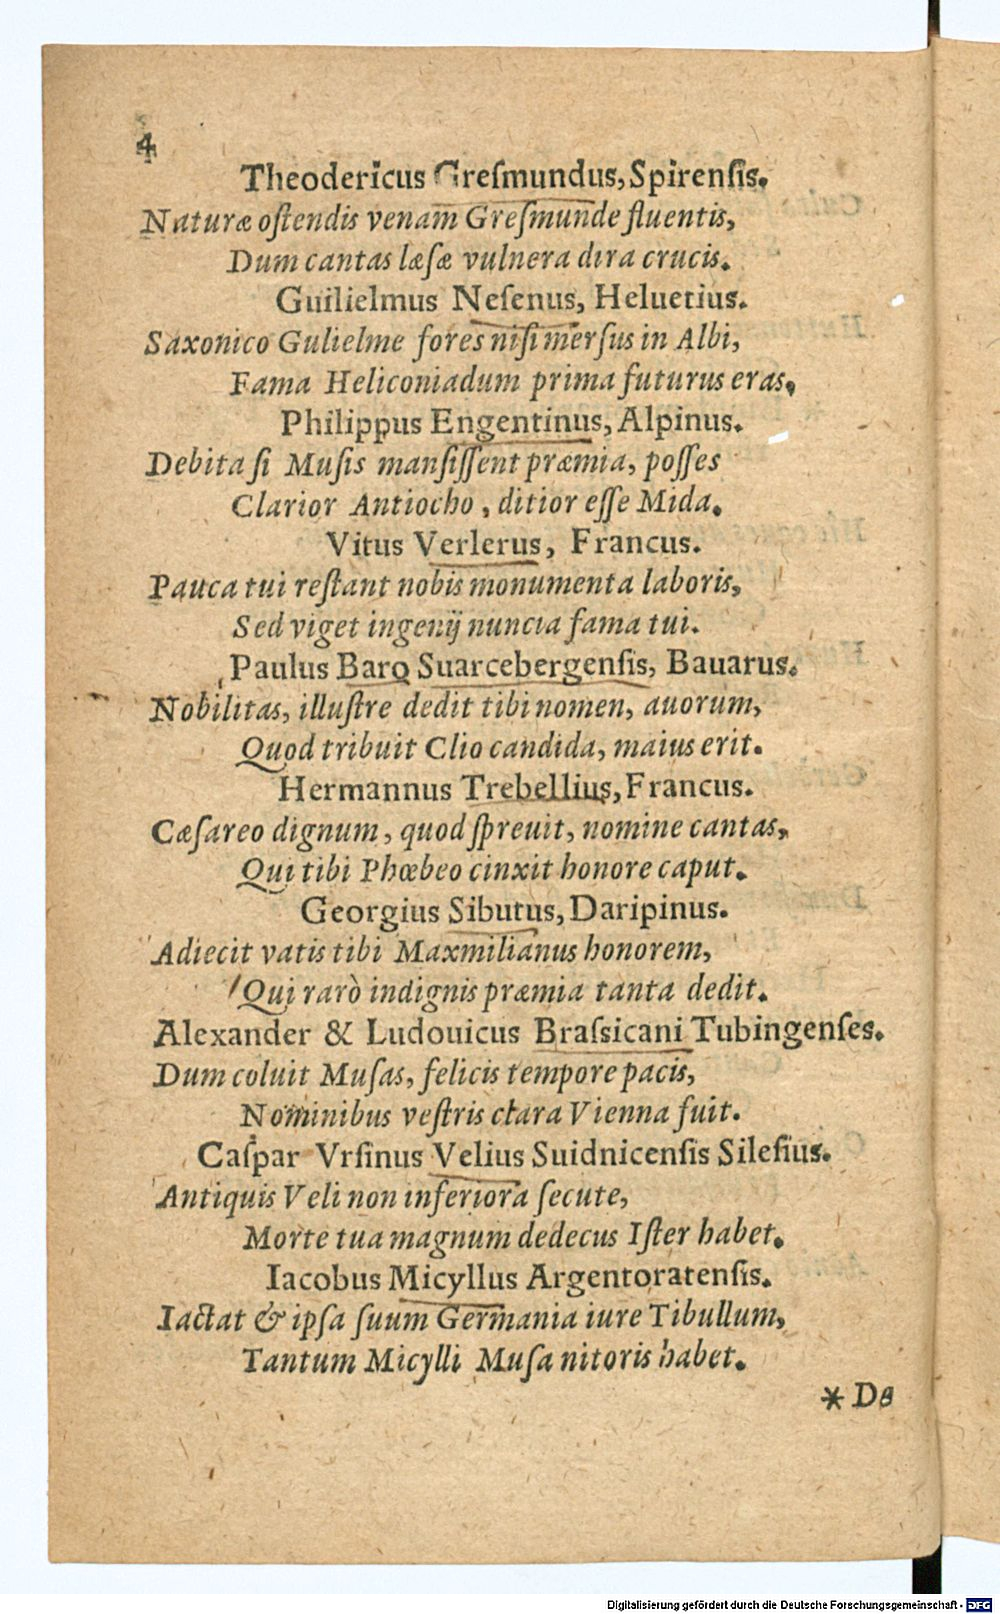 4
Theodericus Greſmundus, Spirenſis.
Naturæ oſtendis venam Greſmunde fluentis,
Dum cantas læſæ vulnera dira crucis.
Guilielmus Neſenus, Heluetius.
Saxonico Gulielme fores niſi merſus in Albi,
Fama Heliconiadum prima futurus eras,
Philippus Engentinus, Alpinus.
Debita ſi Muſis manſiſſent præmia, poſſes
Clarior Antiocho, ditior eſſe Mida.
Vitus Verlerus, Francus.
Pauca tui reſtant nobis monumenta laboris,
Sed viget ingenij nuncia fama tui.
Paulus Baro Suarcebergenſis, Bauarus.
Nobilitas, illuſtre dedit tibi nomen, auorum,
Quod tribuit Clio candida, maius erit.
Hermannus Trebellius, Francus.
Cæſareo dignum, quod ſpreuit, nomine cantas,
Qui tibi Phœbeo cinxit honore caput.
Georgius Sibutus, Daripinus.
Adiecit vatis tibi Maxmilianus honorem,
Qui rarò indignis præmia tanta dedit.
Alexander & Ludouicus Braſsicani Tubingenſes.
Dum coluit Muſas, felicis tempore pacis,
Nominibus veſtris clara Vienna fuit.
Caſpar Vrſinus Velius Suidnicenſis Sileſius.
Antiquis Veli non inferiora ſecute,
Morte tua magnum dedecus Iſter habet.
Iacobus Micyllus Argentoratenſis.
Iactat & ipſa ſuum Germania iure Tibullum,
Tantum Micylli Muſa nitoris habet.
* De
Digitalisierung gefördert durch die Deutsche Forschungsgemeinschaft - DFG